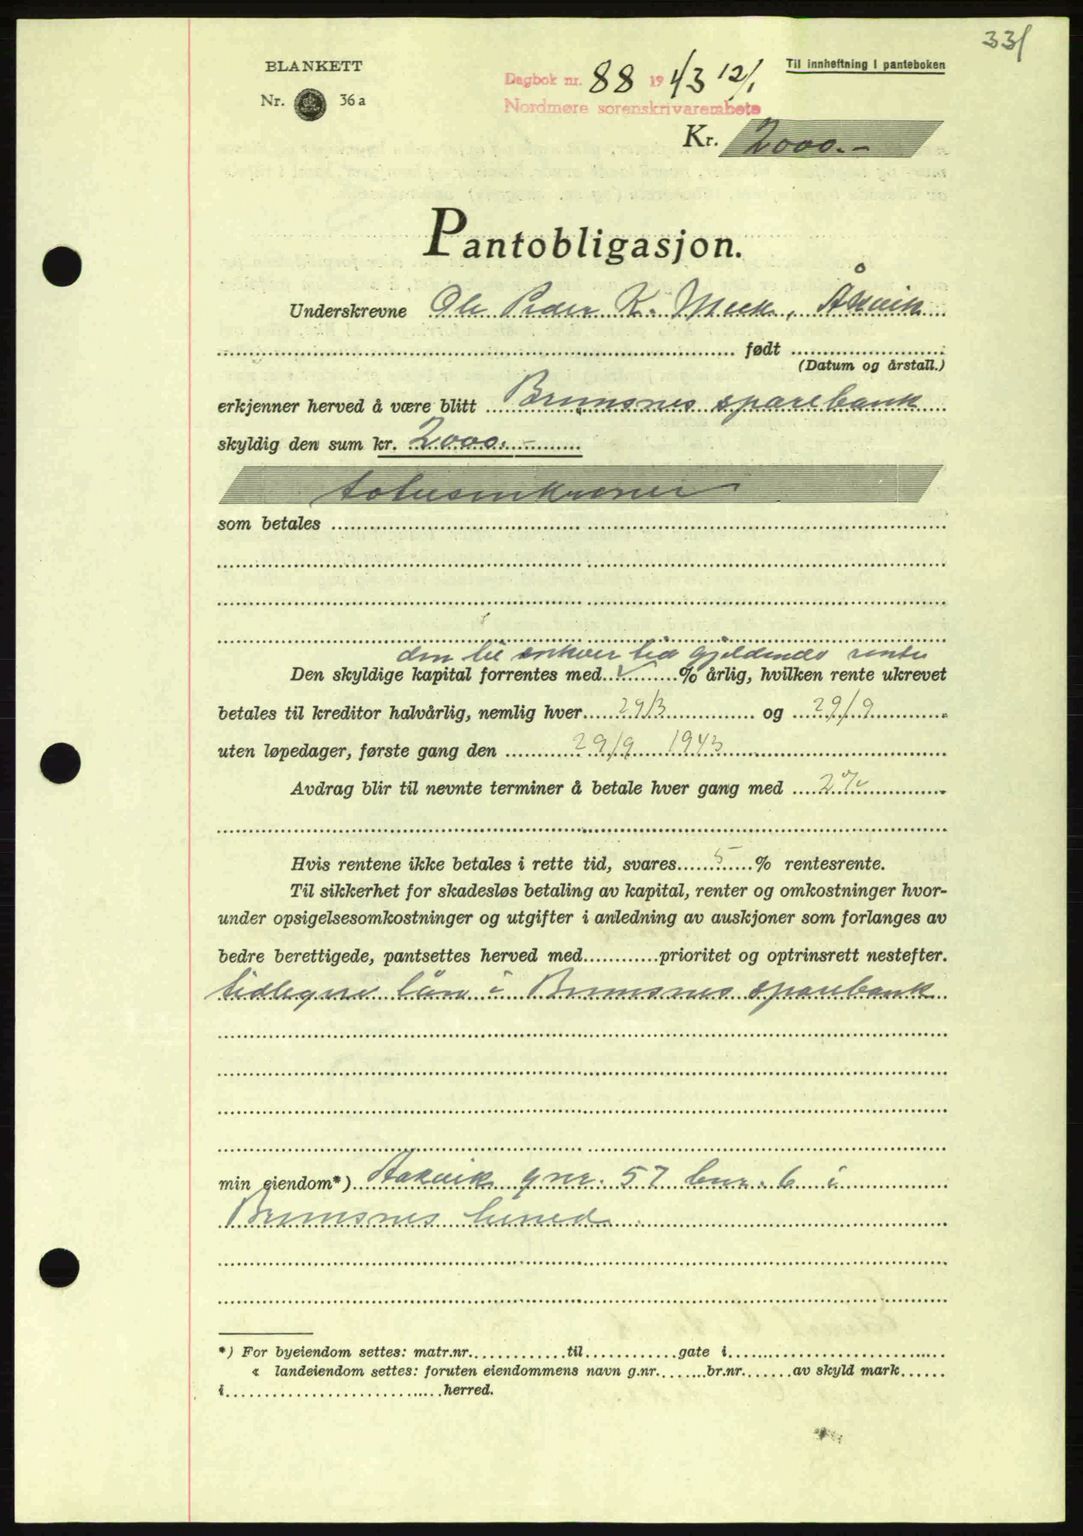 331
BLANKETT
Nr. 36 a
Dagbok nr. 88 1943 12/1
Nordmøre sorenskrivarembete
Til innheftning i panteboken
Kr. 2000.-
Pantobligasjon.
Underskrevne Ole Peder K. Meek, Åkvik
født
(Datum og årstall.)
erkjenner herved å være blitt Bremsnes sparebank
skyldig den sum kr. 2000.-
totusenkroner
som betales
den til enhver tid gjeldende rente
Den skyldige kapital forrentes med % årlig, hvilken rente ukrevet
betales til kreditor halvårlig, nemlig hver 29/3 og 29/9
uten løpedager, første gang den 29/9 1943
Avdrag blir til nevnte terminer å betale hver gang med 2%
Hvis rentene ikke betales i rette tid, svares 5 % rentesrente.
Til sikkerhet for skadesløs betaling av kapital, renter og omkostninger hvor-
under opsigelsesomkostninger og utgifter i anledning av auskjoner som forlanges av
bedre berettigede, pantsettes herved med prioritet og optrinsrett nestefter.
tidlegere lån i Bremsnes sparebank
min eiendom*) Aakvik gnr. 57 bnr. 6 i
Bremsnes herred
*) For byeiendom settes: matr.nr. til gate i
« landeiendom settes: foruten eiendommens navn g.nr. br.nr. av skyld mark
i herred.